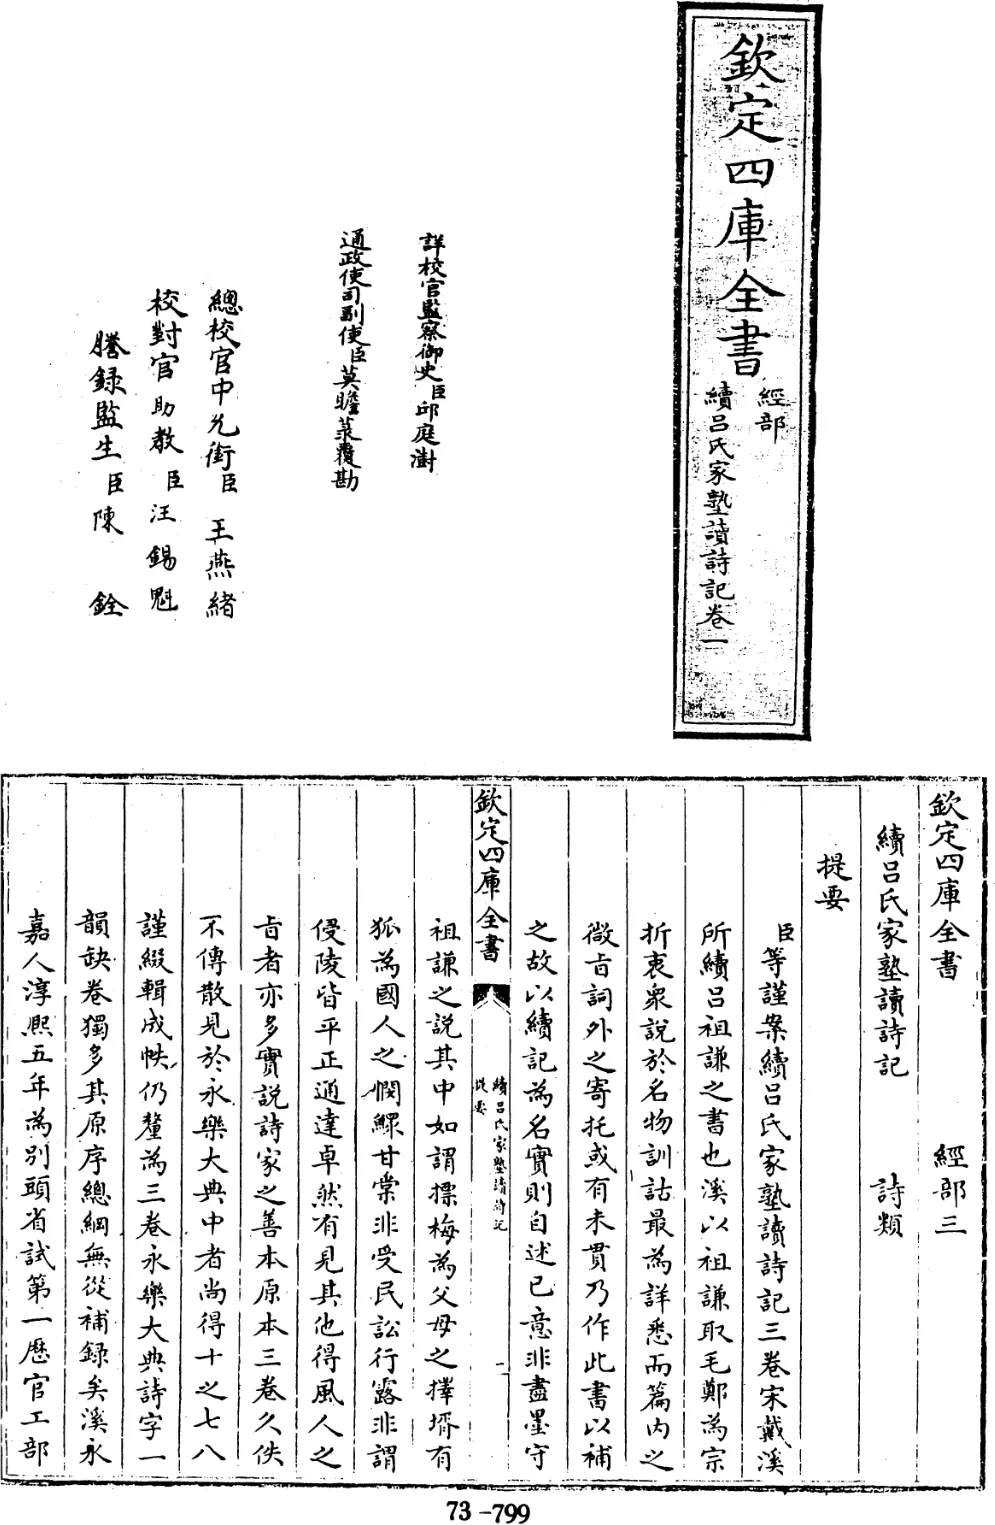 欽定四庫全書
經部
續呂氏家塾讀詩記卷一
詳校官監察御史臣邱庭澍
通政使司副使臣莫瞻菉覆勘
總校官中允銜臣王燕緒
校對官助教臣汪錫魁
謄錄監生臣陳銓
欽定四庫全書 經部三
續呂氏家塾讀詩記 詩類
提要
臣等謹案續呂氏家塾讀詩記三卷宋戴溪
所續呂祖謙之書也溪以祖謙取毛鄭為宗
折衷衆說於名物訓詁最為詳悉而篇内之
微㫖詞外之寄托或有未貫乃作此書以補
之故以續記為名實則自述已意非盡墨守
欽定四庫全書
續呂氏家塾讀詩記
提要
一
祖謙之說其中如謂摽梅為父母之擇壻有
狐為國人之憫鰥甘棠非受民訟行露非謂
侵陵皆平正通達卓然有見其他得風人之
㫖者亦多實說詩家之善本原本三卷久佚
不傳散見於永樂大典中者尚得十之七八
謹綴輯成帙仍釐為三卷永樂大典詩字一
韻缺卷獨多其原序總綱無從補錄矣溪永
嘉人淳熙五年為别頭省試第一歷官工部
73-799